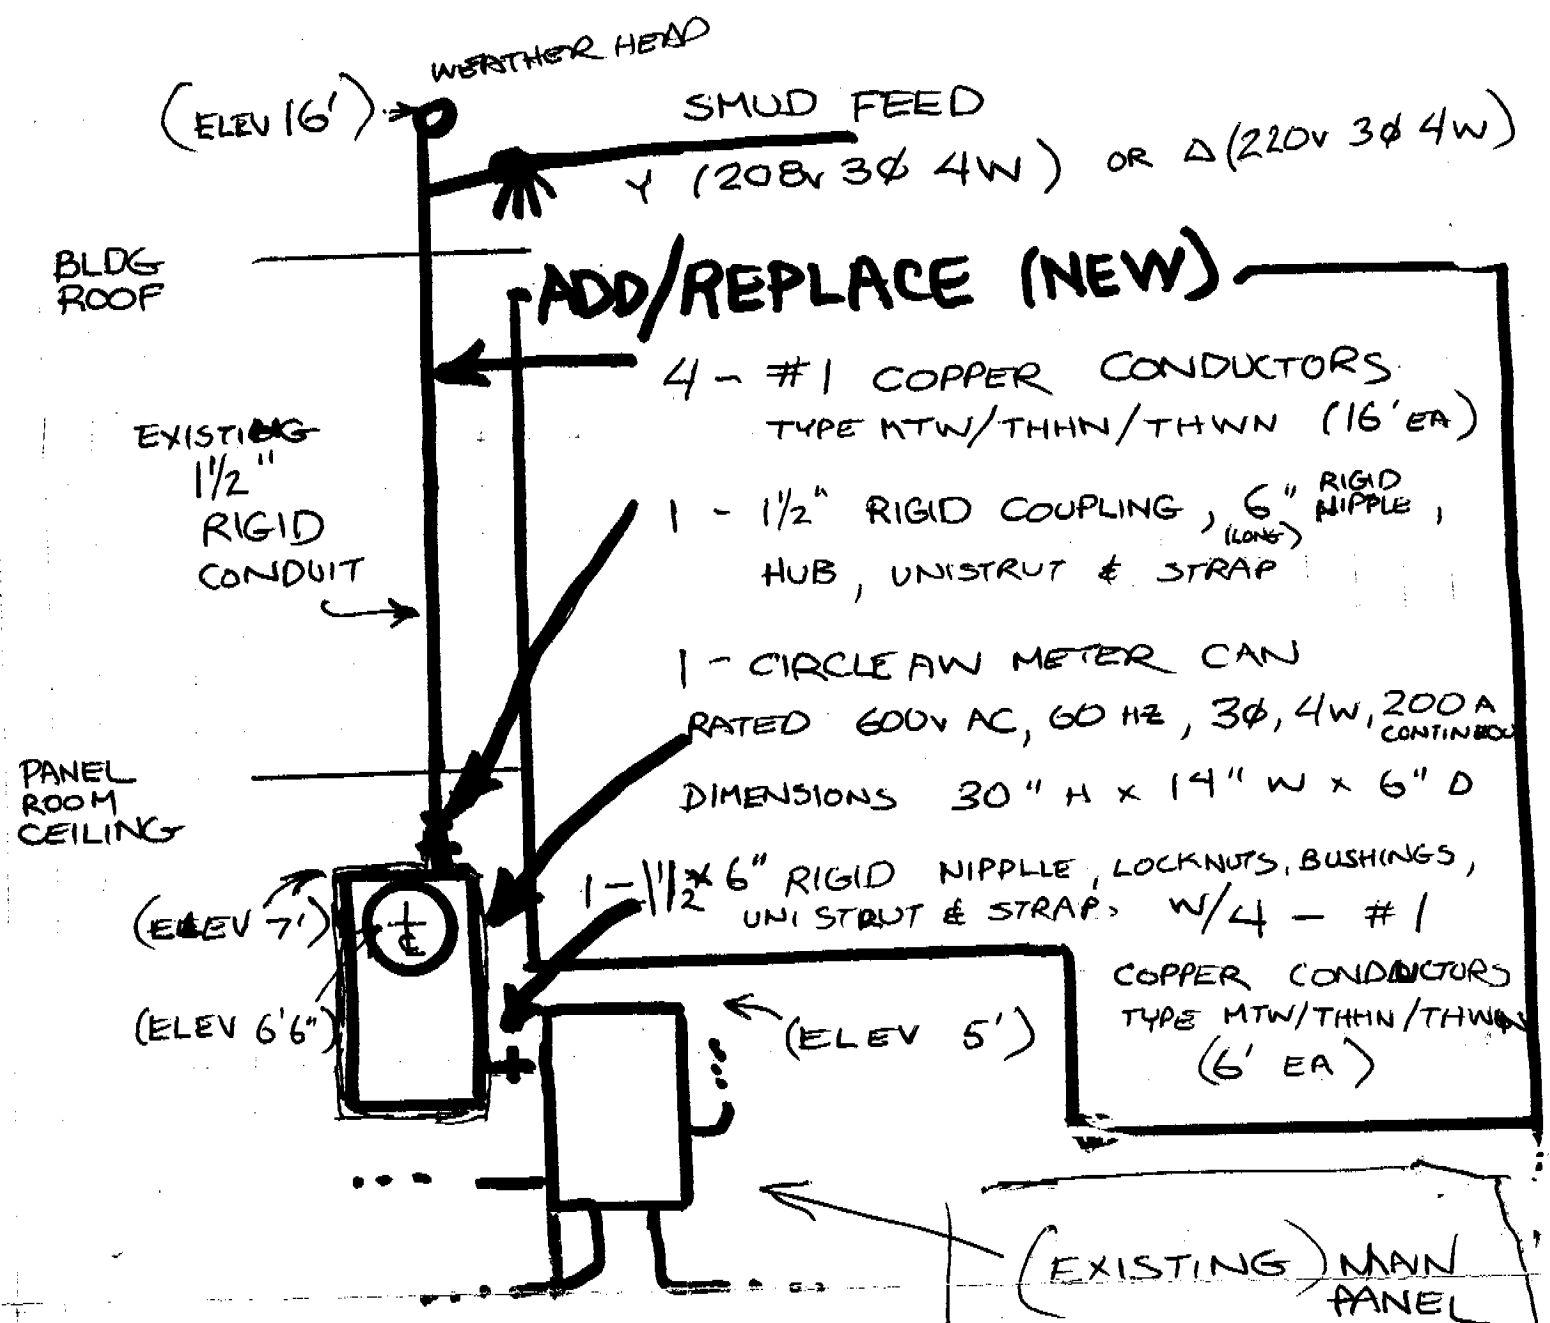 WEATHER HEAD
(ELEV 16')
SMUD FEED
Y (208V 3Ø 4W) OR Δ(220V 3Ø 4W)
BLDG
ROOF
ADD/REPLACE (NEW)
4 - #1 COPPER CONDUCTORS
TYPE MTW/THHN/THWN (16' EA)
EXISTING
1 1/2"
RIGID
CONDUIT
1 - 1 1/2" RIGID COUPLING, 6" RIGID NIPPLE,
(LONG)
HUB, UNISTRUT & STRAP
1 - CIRCLE AW METER CAN
RATED 600V AC, 60 HZ, 3Ø, 4W, 200A
CONTINUOU
DIMENSIONS 30" H x 14" W x 6" D
PANEL
ROOM
CEILING
1 - 1 1/2 x 6" RIGID NIPPLLE, LOCKNUTS, BUSHINGS,
UNISTRUT & STRAP, W/4 - #1
COPPER CONDUCTORS
TYPE MTW/THHN/THWN
(6' EA)
(ELEV 7')
℄
(ELEV 6'6")
(ELEV 5')
(EXISTING) MAIN
PANEL